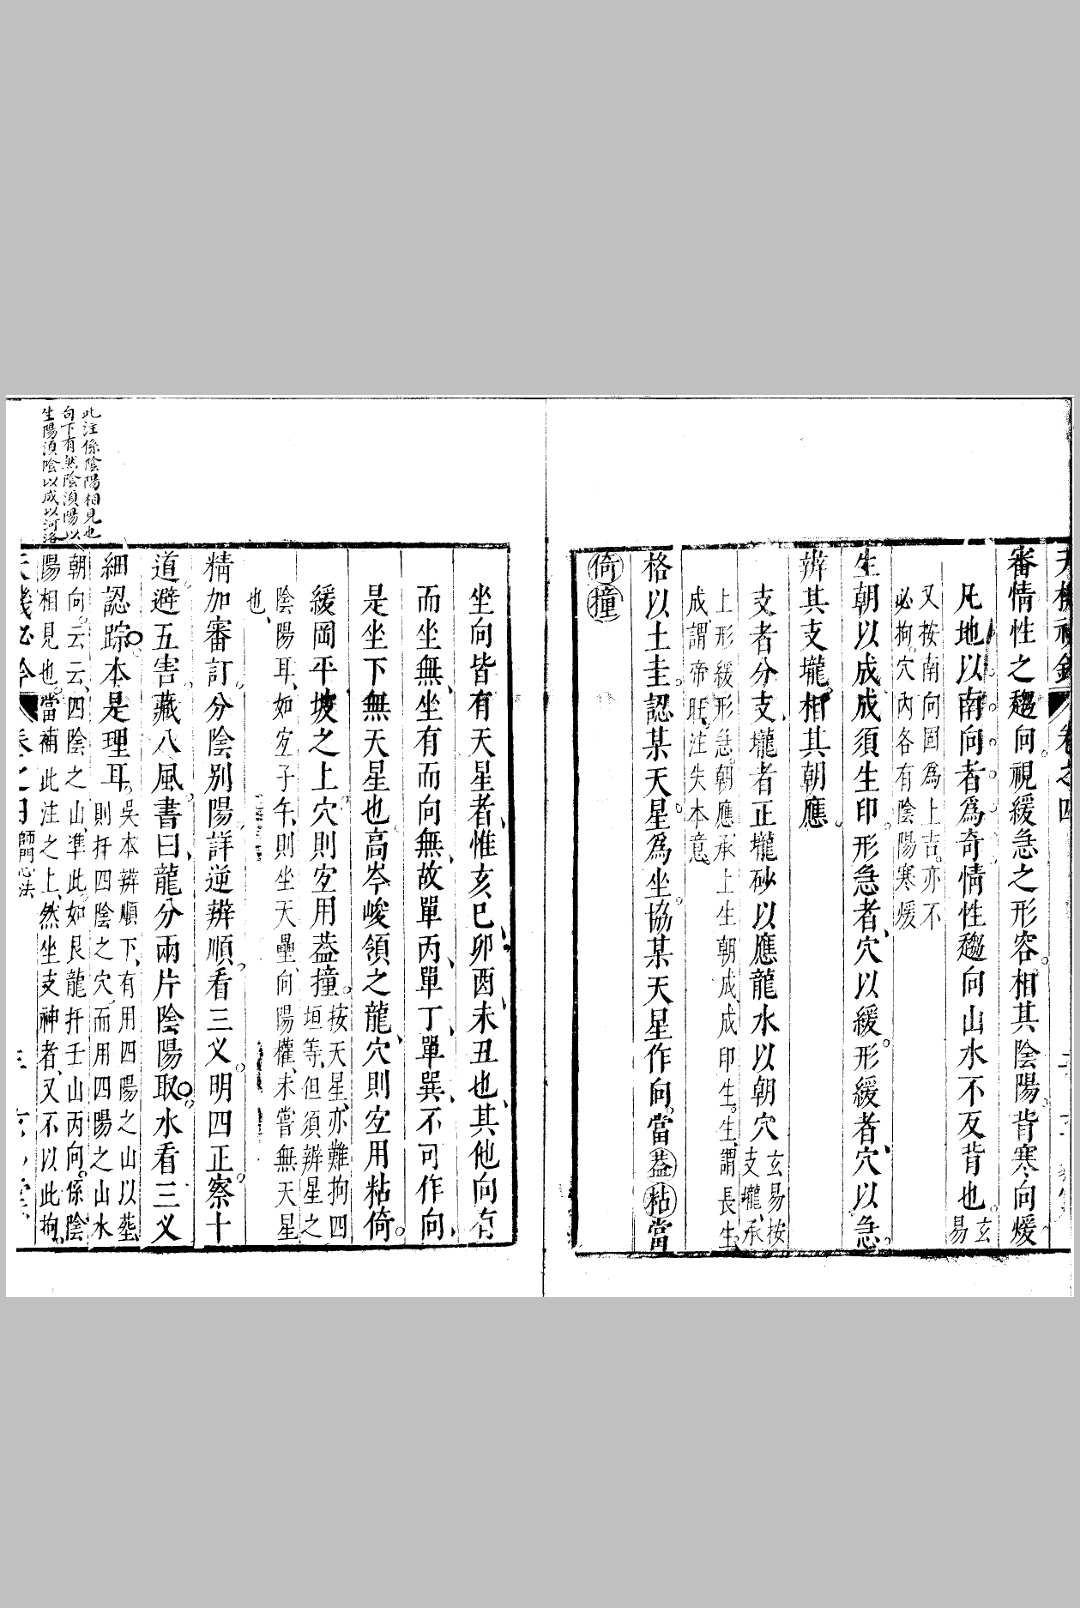 審情性之趨向。視緩急之形容。相其陰陽。背寒向煖
凡地以南向者。爲奇情性趨向山水不反背也。玄易
又按南向固爲上吉。亦不
必拘。穴內各有陰陽寒煖
生朝以成。成須生印。形急者、穴以緩。形緩者、穴以急。
辨其支壠。相其朝應。
支者分支、壠者正壠。砂以應龍。水以朝穴。玄易按支壠、承
上形緩形急。朝應、承上生朝成成印生。生、謂長生。
成謂帝旺。注失本意。
格以土圭。認某天星。爲坐。協某天星作向。當蓋粘當
倚撞
坐向皆有天星者、惟亥巳卯酉未丑也、其他向有
而坐無、坐有而向無、故單丙、單丁、單巽、不可作向、
是坐下無天星也。高岑峻領之龍、穴則宜用粘倚。
緩岡平坡之上、穴則宜用蓋撞。按天星、亦難拘四垣等、但須辨星之
陰陽耳、如宜子午、則坐天壘、向陽權、未嘗無天星
也、
精加審訂。分陰別陽。詳逆辨順。看三义。明四正。察十
道。避五害。藏八風。書曰、龍分兩片陰陽取。水看三义
細認踪。本是理耳。吳本辨順下、有用四陽之山以塟、則扦四陰之穴、而用四陽之山水
朝向。云云、四陰之山、準此。如艮龍扦壬山丙向。係陰
陽相見也。當補此注之上、然坐支神者、又不以此拘。
師門心法
此注係陰陽相見也
句下有然陰須陽以
生陽須陰以成以河洛